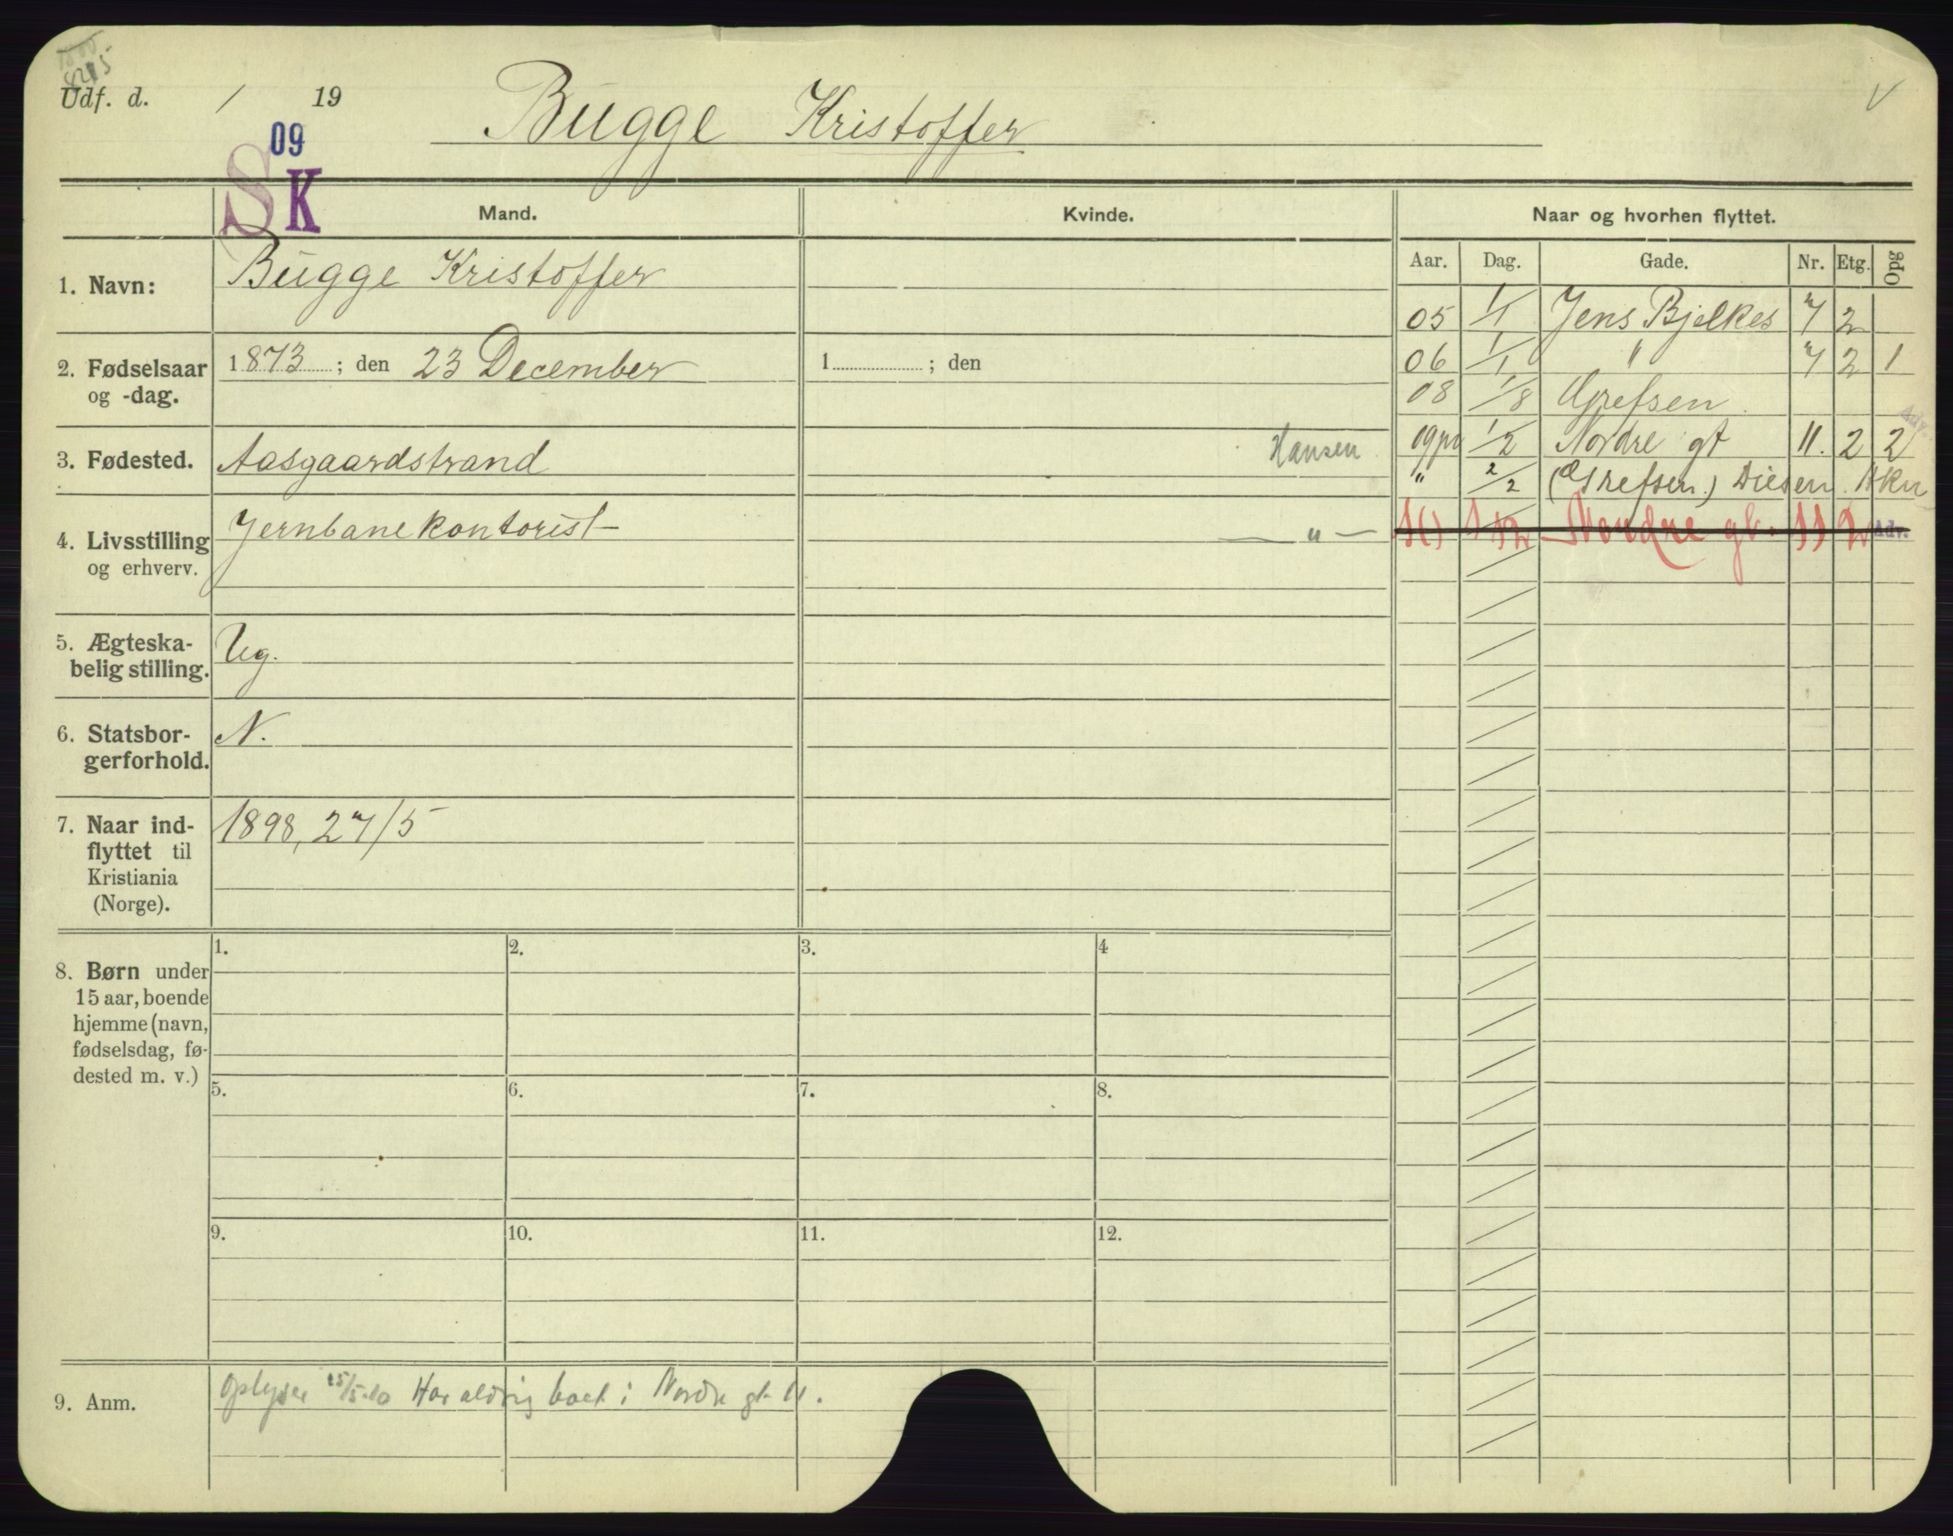 8215
Udf. d. / 19
Bugge Kristoffer
V
09
S K
Mand.
Kvinde.
Naar og hvorhen flyttet.
Aar. Dag. Gade. Nr. Etg. Opg
1. Navn:
Bugge Kristoffer
2. Fødselsaar
og -dag.
1873 ; den 23 December
1 ; den
3. Fødested.
Aasgaardstrand
Hansen
4. Livsstilling
og erhverv.
Jernbanekontorist
— " —
5. Ægteska-
belig stilling.
Ug.
6. Statsbor-
gerforhold.
N.
7. Naar ind-
flyttet til
Kristiania
(Norge).
1898, 27/5
05 1/1 Jens Bjelkes 7 2
06 1/1 " 7 2 1
08 1/8 Grefsen
09 1/2 Nordre gt 11. 2 2 Adv.
" 2/2 (Grefsen.) Diesen
10 1/12 Nordre gt. 11 2 Adv.
8. Børn under
15 aar, boende
hjemme (navn,
fødselsdag, fø-
dested m. v.)
1. 2. 3. 4
5. 6. 7. 8.
9. 10. 11. 12.
9. Anm.
Oplyser 25/5-10 Har aldrig boet i Nordre gt. 11.